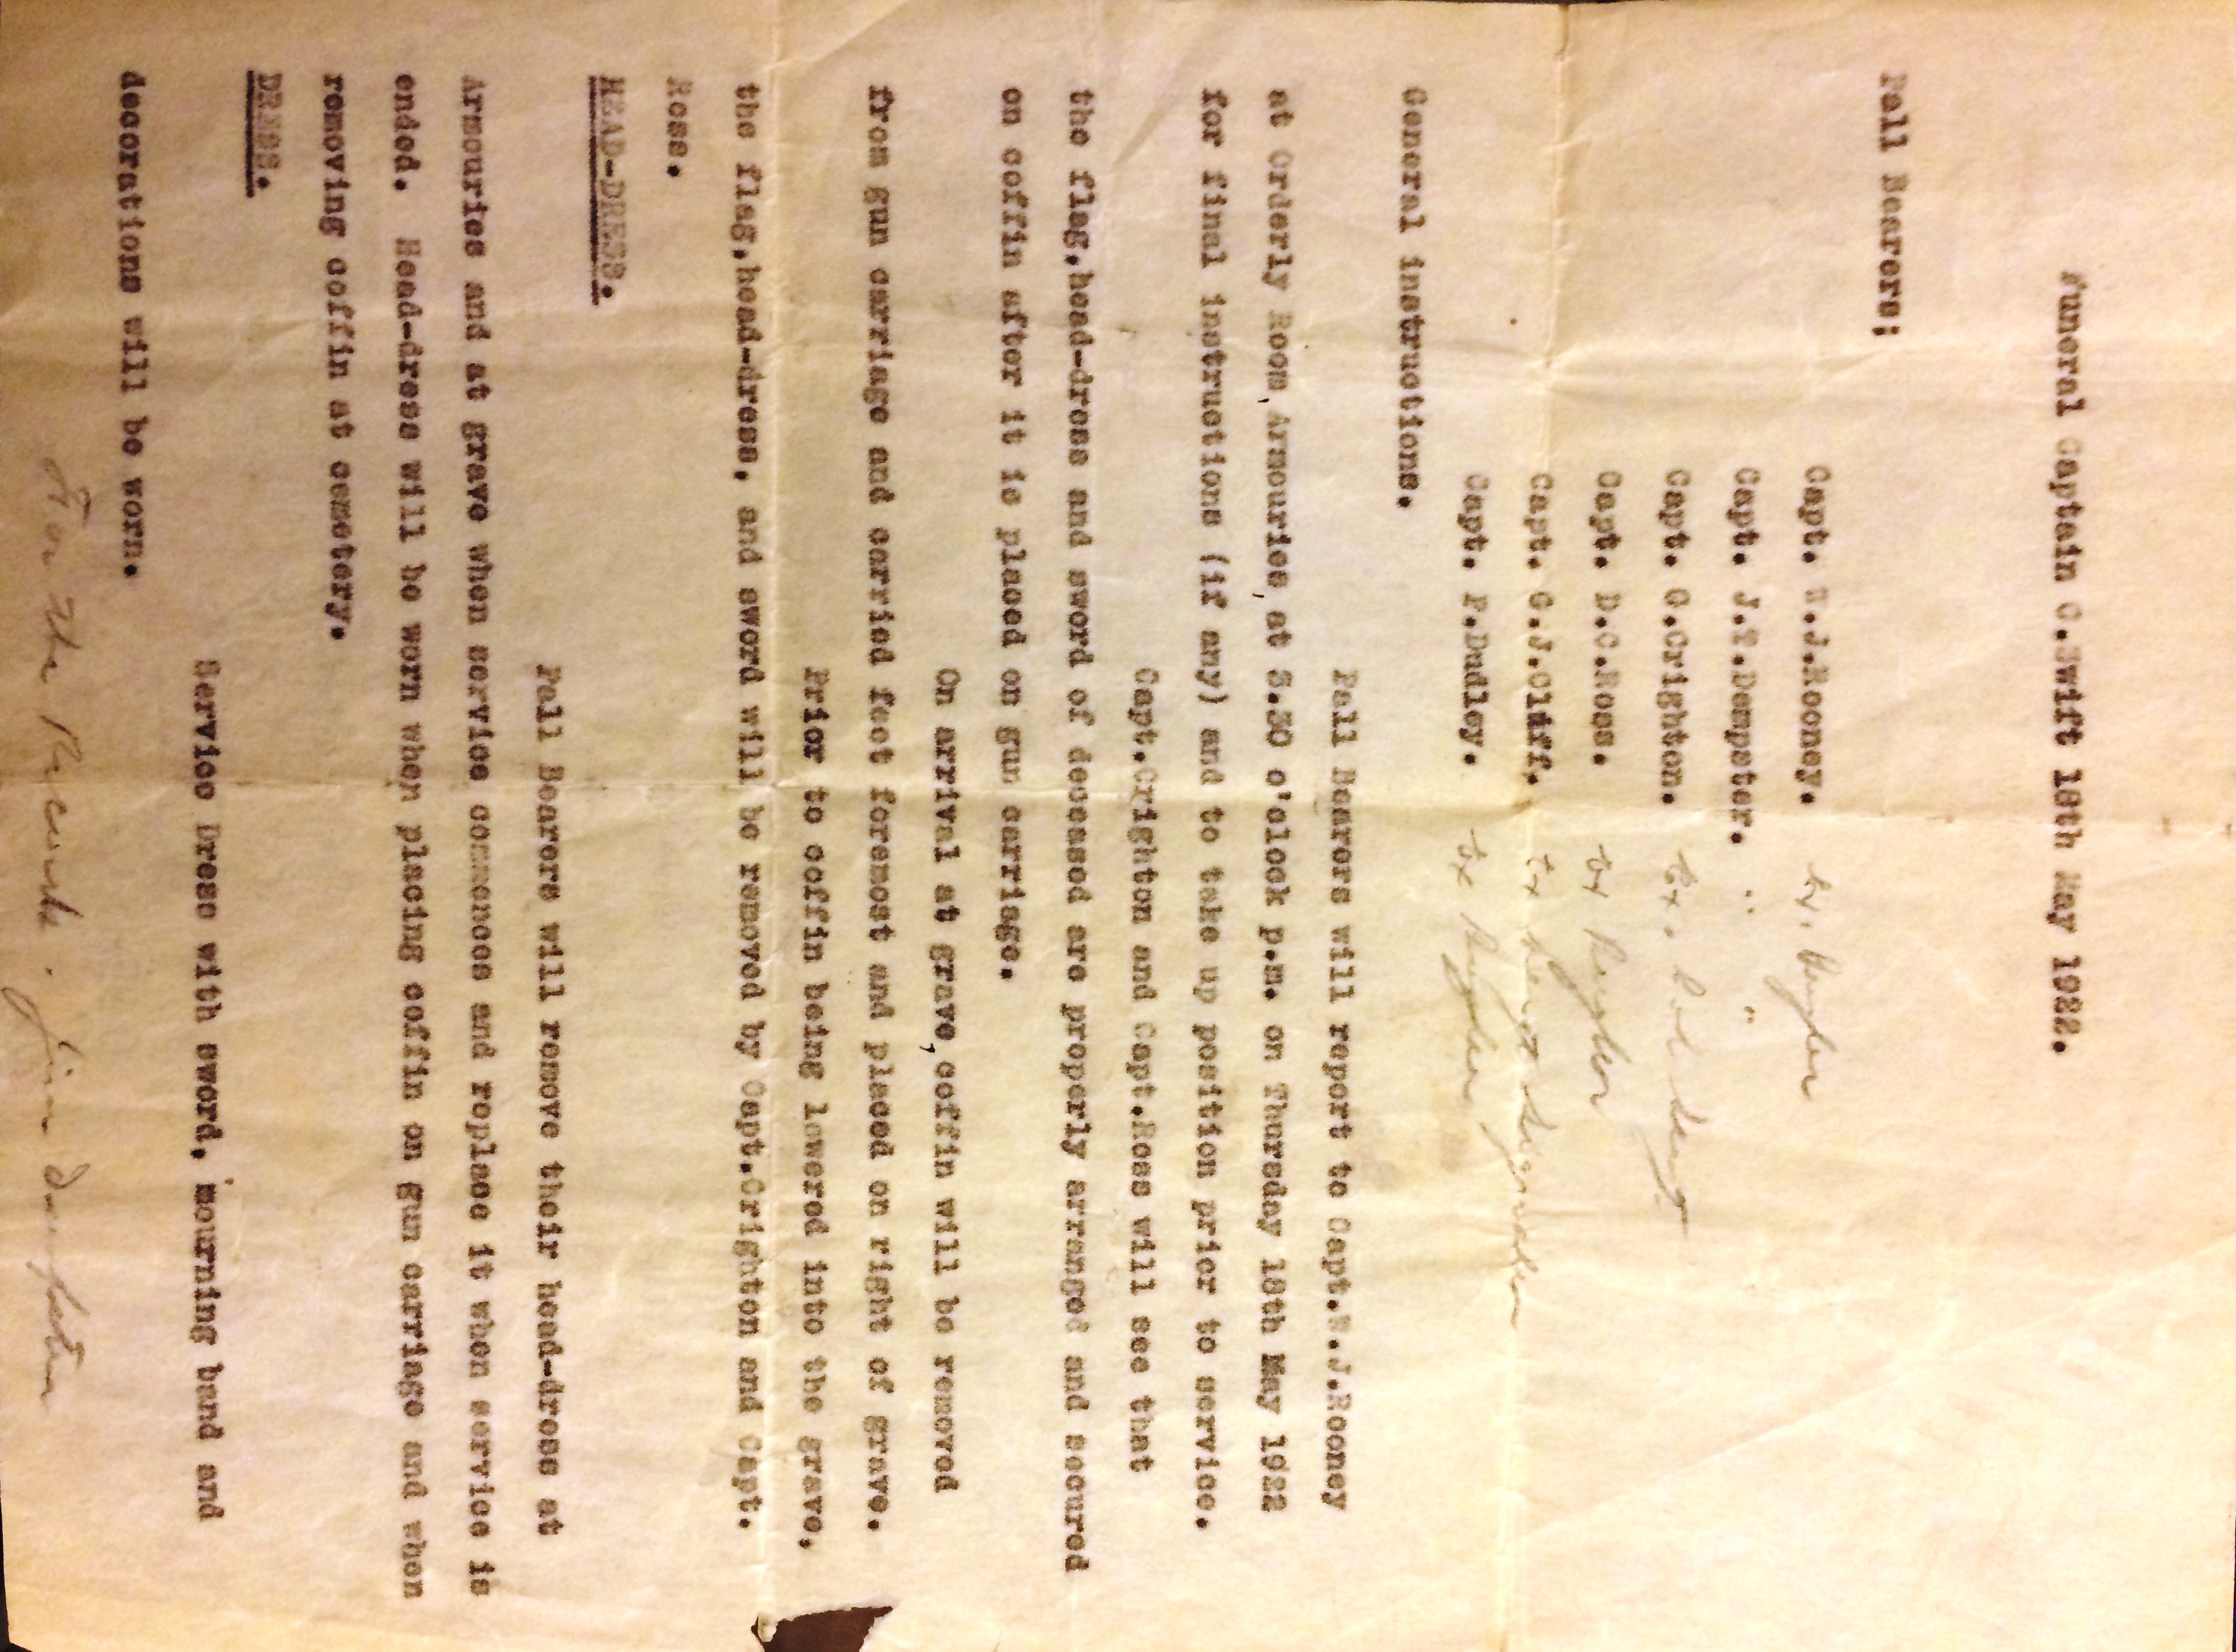 Funeral Captain C.Swift 18th May 1922.
Pall Bearers;
Capt. W.J.Rooney. Ex. Bugler
Capt. J.T.Dempster. " "
Capt. G.Crighton. Ex. Col Sergt
Capt. D.C.Ross. Ex Bugler
Capt. G.J.Cluff. Ex Sergt Signaller
Capt. F.Dudley. Ex Bugler
General instructions.
Pall Bearers will report to Capt.W.J.Rooney
at Orderly Room, Armouries, at 3.30 o'clock p.m. on Thursday 18th May 1922
for final instructions (if any) and to take up position prior to service.
Capt.Crighton and Capt.Ross will see that
the flag,head-dress and sword of deceased are properly arranged and secured
on coffin after it is placed on gun carriage.
On arrival at grave, coffin will be removed
from gun carriage and carried feet foremost and placed on right of grave.
Prior to coffin being lowered into the grave,
the flag,head-dress, and sword will be removed by Capt.Crighton and Capt.
Ross.
HEAD-DRESS.
Pall Bearers will remove their head-dress at
Armouries and at grave when service commences and replace it when service is
ended. Head-dress will be worn when placing coffin on gun carriage and when
removing coffin at cemetery.
DRESS.
Service Dress with sword, mourning band and
decorations will be worn.
For the Records. Jim Dempster